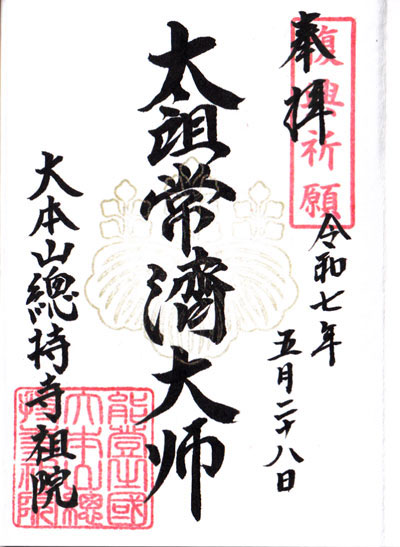 復興祈願
奉拝
令和七年
五月二十八日
太祖常濟大师
大本山總持寺祖院
能登國
大本山總
持寺祖院